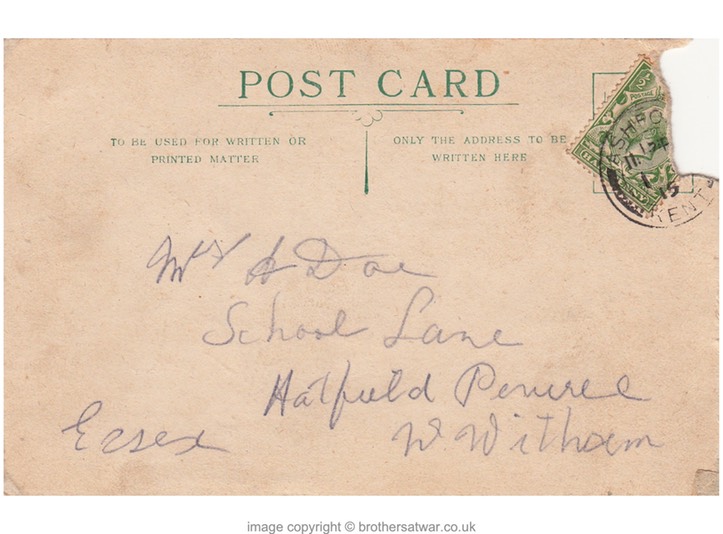 POST CARD
TO BE USED FOR WRITTEN OR
PRINTED MATTER
ONLY THE ADDRESS TO BE
WRITTEN HERE
POSTAGE
ASHFO
KENT
15
Mrs A Doe
School Lane
Hatfield Peverel
Essex
W Witham
image copyright © brothersatwar.co.uk